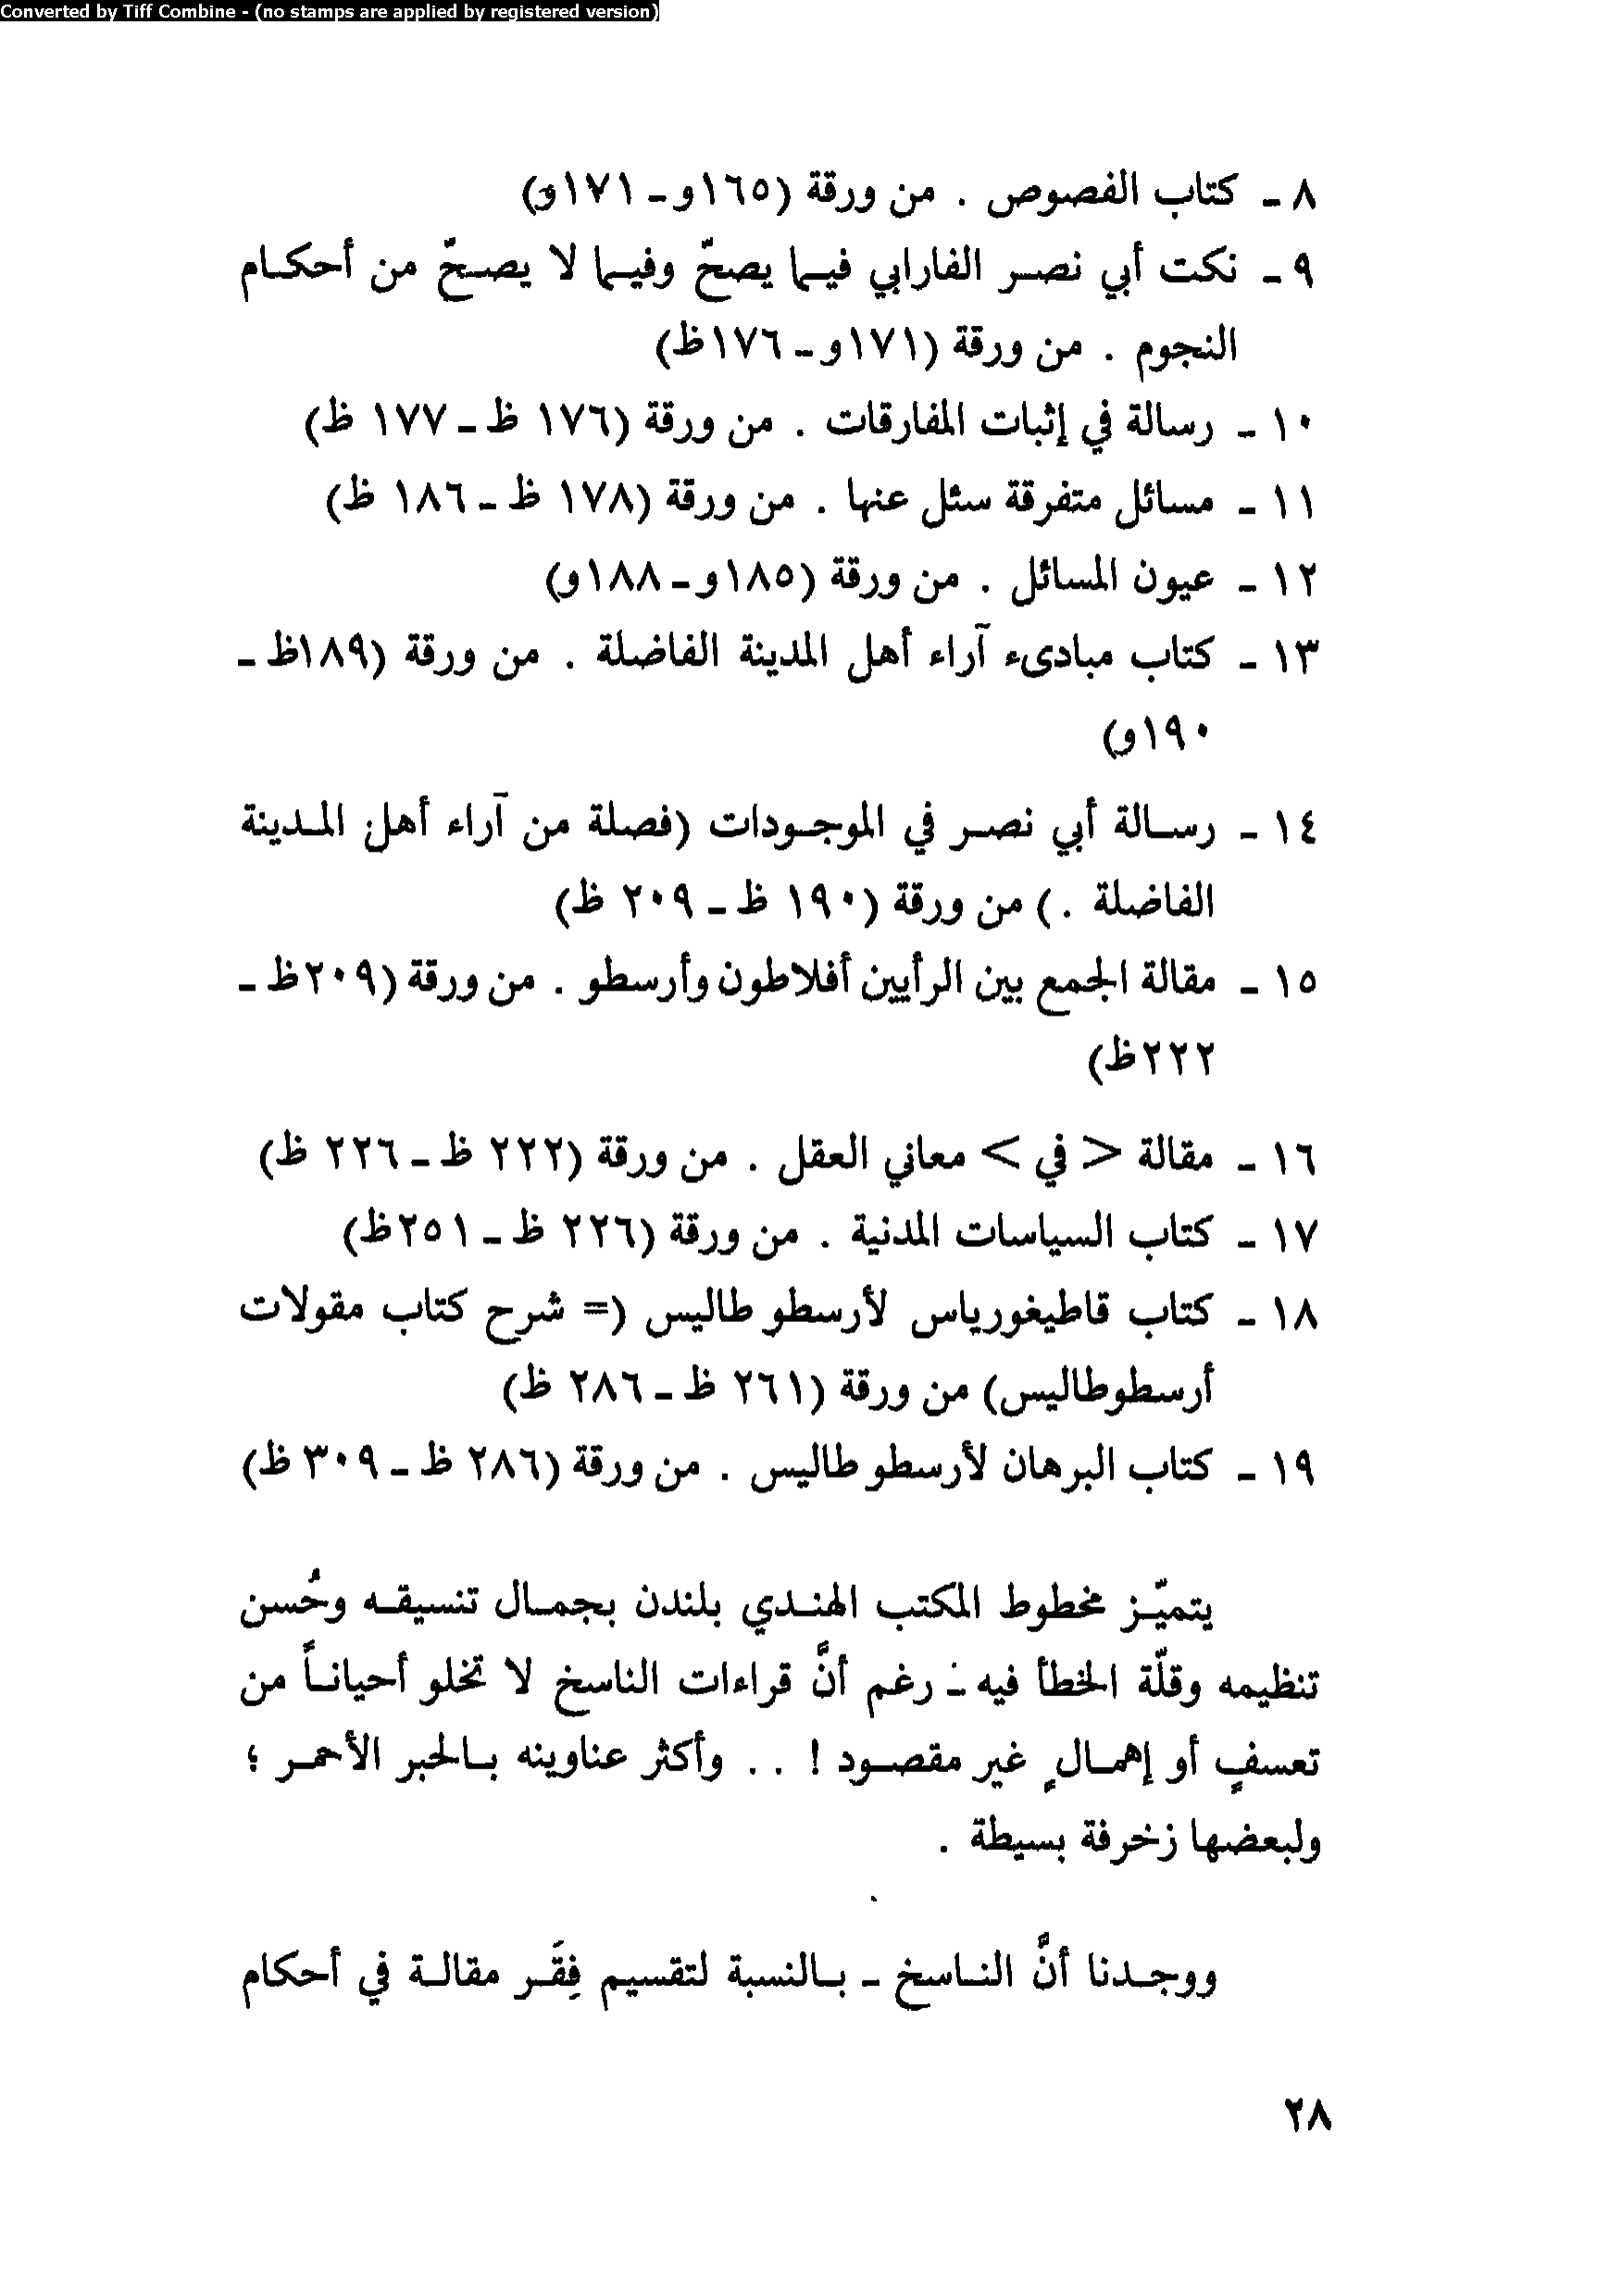 Converted by Tiff Combine - (no stamps are applied by registered version)
٨ ـ كتاب الفصوص . من ورقة (١٦٥و ـ ١٧١و)
٩ ـ نكت أبي نصر الفارابي فيما يصحّ وفيما لا يصحّ من أحكام
النجوم . من ورقة (١٧١و ـ ١٧٦ظ)
١٠ ـ رسالة في إثبات المفارقات . من ورقة (١٧٦ ظ ـ ١٧٧ ظ)
١١ ـ مسائل متفرقة سئل عنها . من ورقة (١٧٨ ظ ـ ١٨٦ ظ)
١٢ ـ عيون المسائل . من ورقة (١٨٥و ـ ١٨٨و)
١٣ ـ كتاب مبادىء آراء أهل المدينة الفاضلة . من ورقة (١٨٩ظ ـ
١٩٠و)
١٤ ـ رسالة أبي نصر في الموجودات (فصلة من آراء أهل المدينة
الفاضلة .) من ورقة (١٩٠ ظ ـ ٢٠٩ ظ)
١٥ ـ مقالة الجمع بين الرأيين أفلاطون وأرسطو . من ورقة (٢٠٩ظ ـ
٢٢٢ظ)
١٦ ـ مقالة < في > معاني العقل . من ورقة (٢٢٢ ظ ـ ٢٢٦ ظ)
١٧ ـ كتاب السياسات المدنية . من ورقة (٢٢٦ ظ ـ ٢٥١ظ)
١٨ ـ كتاب قاطيغورياس لأرسطو طاليس (= شرح كتاب مقولات
أرسطوطاليس) من ورقة (٢٦١ ظ ـ ٢٨٦ ظ)
١٩ ـ كتاب البرهان لأرسطو طاليس . من ورقة (٢٨٦ ظ ـ ٣٠٩ ظ)
يتميّز مخطوط المكتب الهندي بلندن بجمال تنسيقه وحُسن
تنظيمه وقلّة الخطأ فيه ـ رغم أنَّ قراءات الناسخ لا تخلو أحياناً من
تعسفٍ أو إهمالٍ غير مقصود ! . . وأكثر عناوينه بالحبر الأحمر ؛
ولبعضها زخرفة بسيطة .
ووجدنا أنَّ الناسخ ـ بالنسبة لتقسيم فِقَر مقالة في أحكام
٢٨